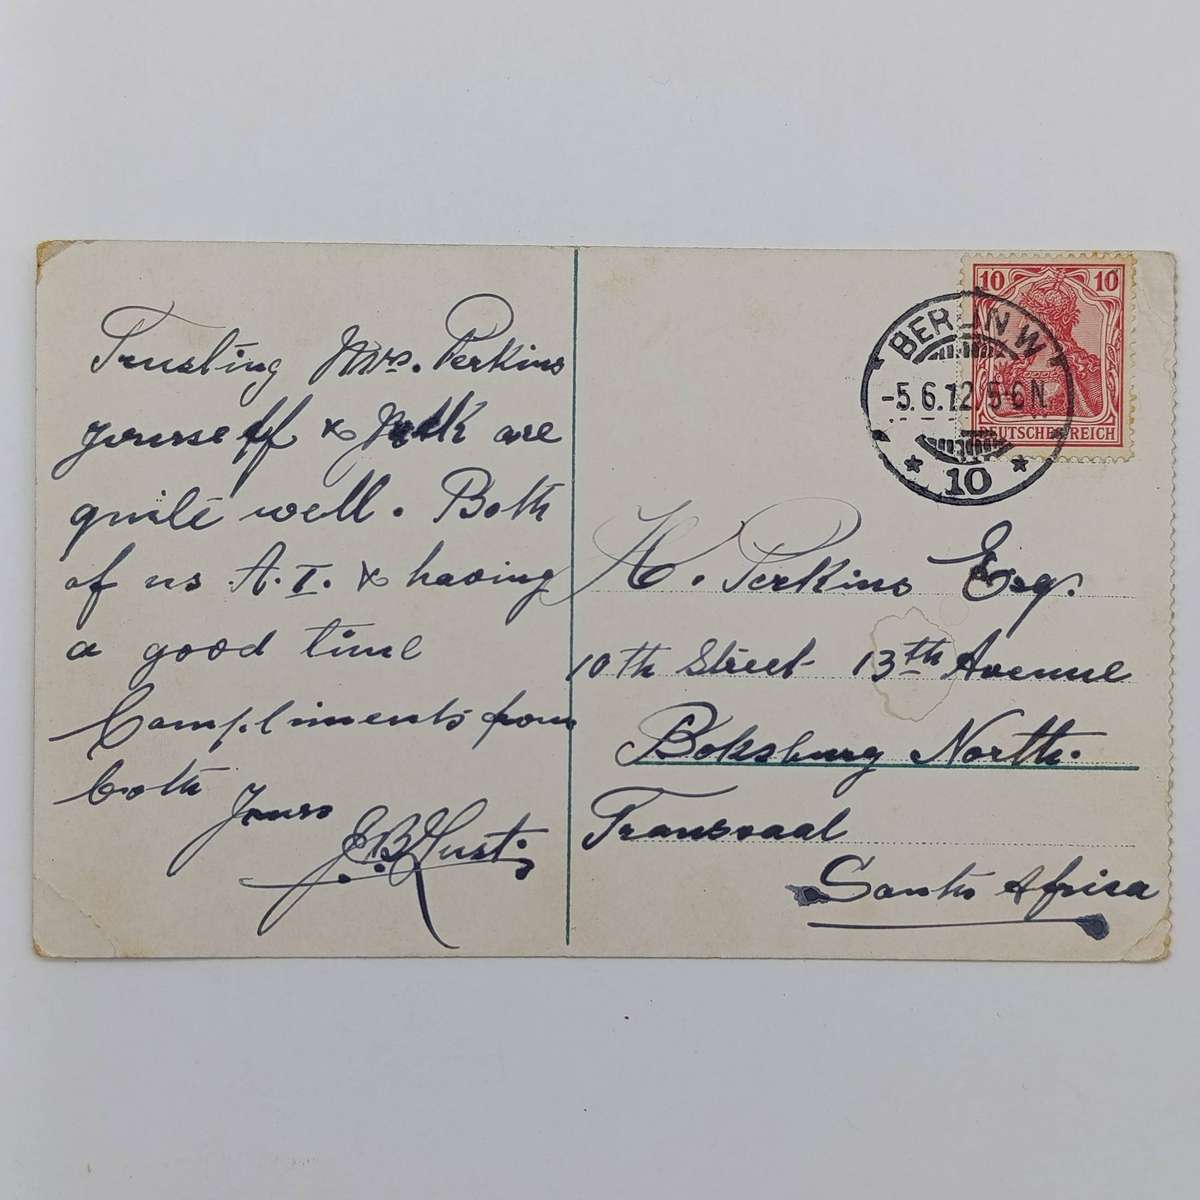 Trusting Mrs. Perkins
yourself & are
quite well. Both
of us A.I. & having
a good time
Compliments from
both
Yours
10 10
DEUTSCHES REICH
BERLIN W
-5.6.12 5-6 N.
* 10 *
H. Perkins Esq.
10th Street 13th Avenue
Boksburg North.
Transvaal
South Africa